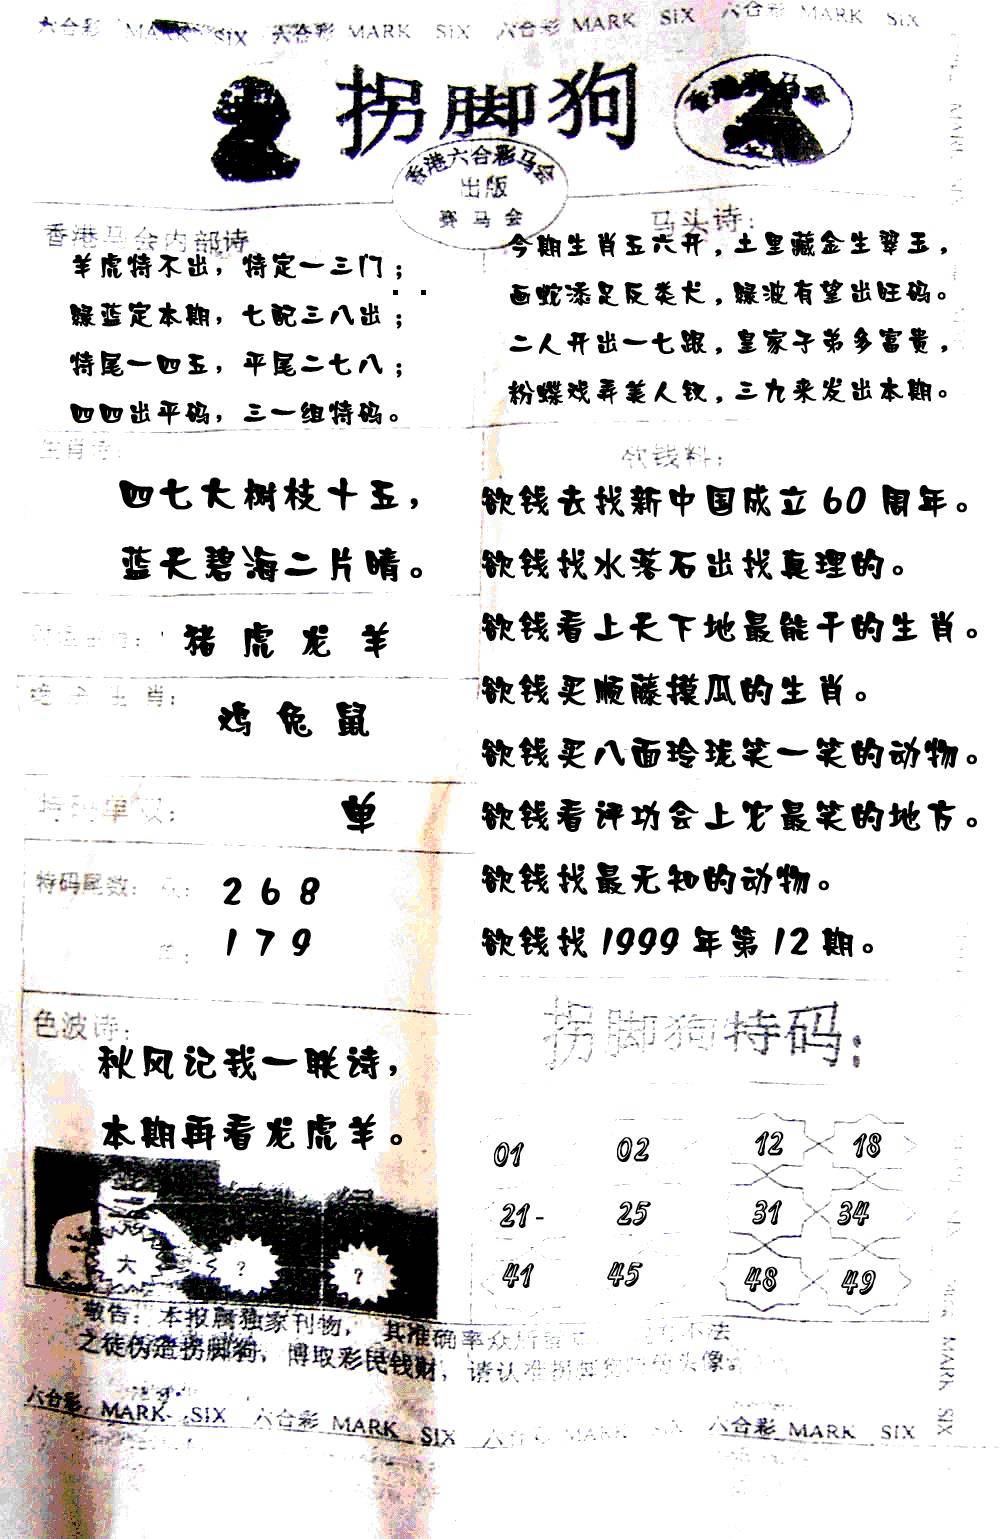 六合彩 MARK SIX 六合彩 MARK SIX 六合彩 MARK SIX 六合彩 MARK SIX
拐脚狗
香港六合彩马会
出版
赛马会
香港马会内部诗
羊虎特不出，特定一三门；
绿蓝定本期，七配三八出；
特尾一四五，平尾二七八；
四四出平码，三一组特码。
马头诗：
今期生肖五六开，土里藏金生翠玉，
画蛇添足反类犬，绿波有望出旺码。
二人开出一七跟，皇家子弟多富贵，
粉蝶戏弄美人钗，三九来发出本期。
生肖诗：
四七大树枝十五，
蓝天碧海二片晴。
猪虎龙羊
绝杀生肖：
鸡兔鼠
特码单双：
单
特码尾数：
268
179
色波诗：
秋风记我一联诗，
本期再看龙虎羊。
大 ? ?
欲钱料：
欲钱去找新中国成立60周年。
欲钱找水落石出找真理的。
欲钱看上天下地最能干的生肖。
欲钱买顺藤摸瓜的生肖。
欲钱买八面玲珑笑一笑的动物。
欲钱看评功会上它最笑的地方。
欲钱找最无知的动物。
欲钱找1999年第12期。
拐脚狗特码：
01 02 12 18
21- 25 31 34
41 45 48 49
敬告：本报属独家刊物，其准确率众所 不法
之徒伪造拐脚狗，博取彩民钱财，请认准拐脚狗 头像。
六合彩 MARK SIX 六合彩 MARK SIX 六合彩 MARK SIX 六合彩 MARK SIX
MARK SIX